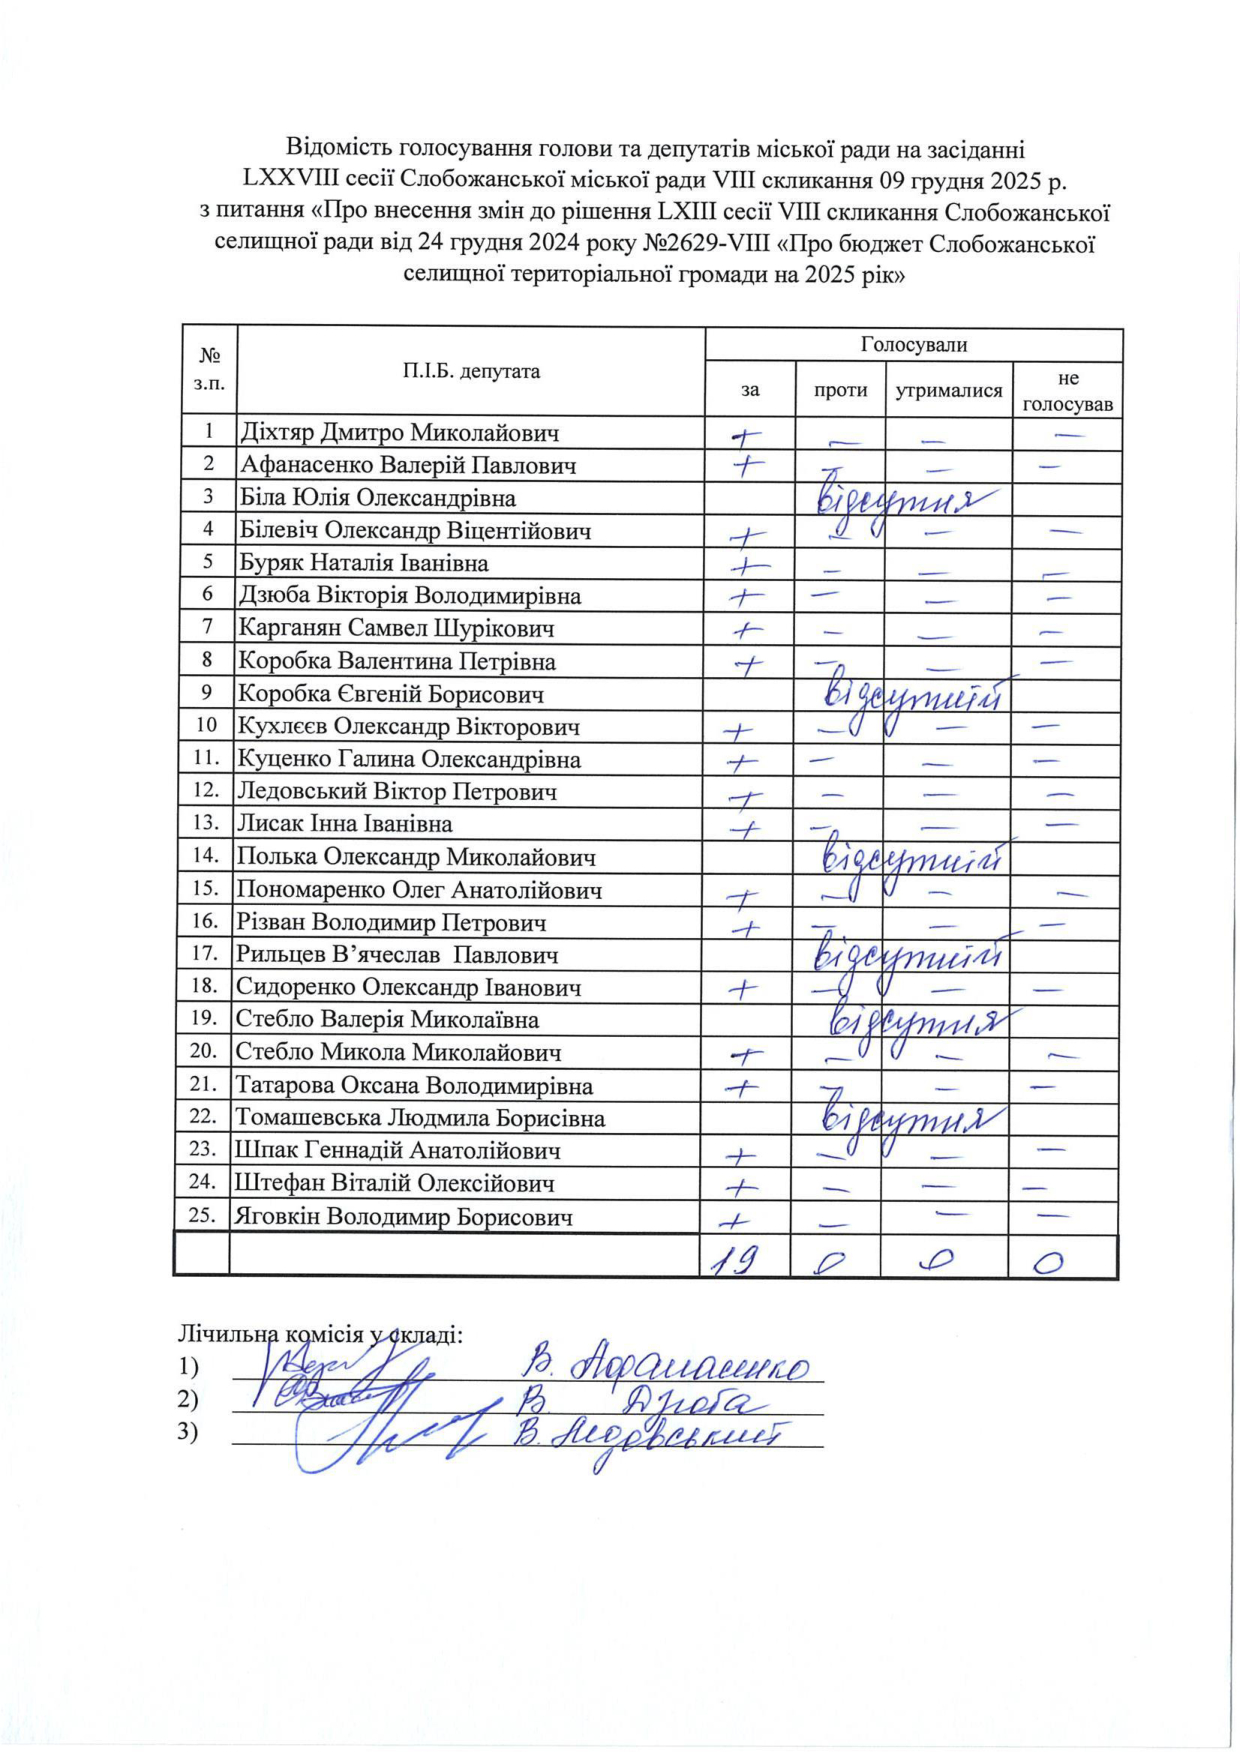 Відомість голосування голови та депутатів міської ради на засіданні
LXXVIII сесії Слобожанської міської ради VIII скликання 09 грудня 2025 р.
з питання «Про внесення змін до рішення LXIII сесії VIII скликання Слобожанської
селищної ради від 24 грудня 2024 року №2629-VIII «Про бюджет Слобожанської
селищної територіальної громади на 2025 рік»
№ з.п. П.І.Б. депутата Голосували
за проти утрималися не голосував
1 Діхтяр Дмитро Миколайович + — — —
2 Афанасенко Валерій Павлович + — — —
3 Біла Юлія Олександрівна відсутня
4 Білевіч Олександр Віцентійович + — — —
5 Буряк Наталія Іванівна + — — —
6 Дзюба Вікторія Володимирівна + — — —
7 Карганян Самвел Шурікович + — — —
8 Коробка Валентина Петрівна + — — —
9 Коробка Євгеній Борисович відсутній
10 Кухлєєв Олександр Вікторович + — — —
11. Куценко Галина Олександрівна + — — —
12. Ледовський Віктор Петрович + — — —
13. Лисак Інна Іванівна + — — —
14. Полька Олександр Миколайович відсутній
15. Пономаренко Олег Анатолійович + — — —
16. Різван Володимир Петрович + — — —
17. Рильцев В’ячеслав Павлович відсутній
18. Сидоренко Олександр Іванович + — — —
19. Стебло Валерія Миколаївна відсутня
20. Стебло Микола Миколайович + — — —
21. Татарова Оксана Володимирівна + — — —
22. Томашевська Людмила Борисівна відсутня
23. Шпак Геннадій Анатолійович + — — —
24. Штефан Віталій Олексійович + — — —
25. Яговкін Володимир Борисович + — — —
19 0 0 0
Лічильна комісія у складі:
1) В. Афанасенко
2) В Дзюба
3) В. Ледовський